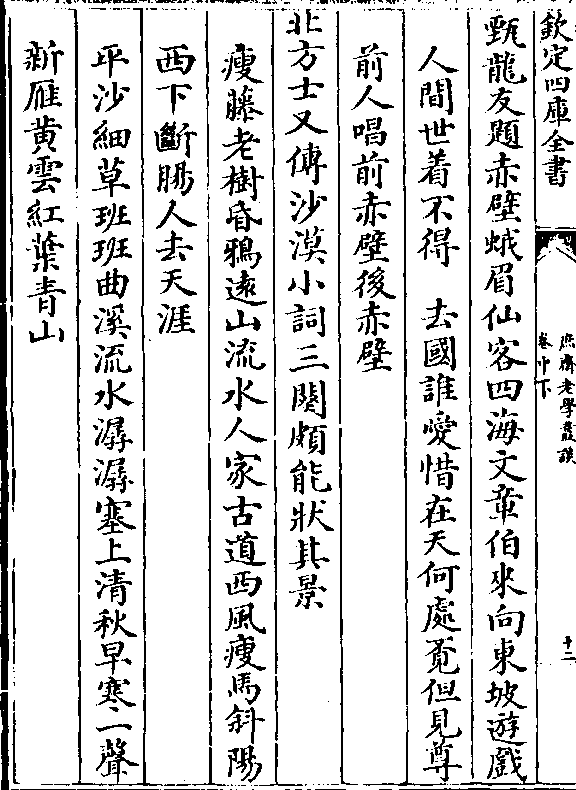 欽定四庫全書
庶齋老學叢談
卷中下
十二
甄龍友題赤壁蛾眉仙客四海文章伯來向東坡遊戲
人間世着不得　去國誰愛惜在天何處覓但見尊
前人唱前赤壁後赤壁
北方士又傳沙漠小詞三闋頗能狀其景
瘦藤老樹昏鴉遠山流水人家古道西風瘦馬斜陽
西下斷腸人去天涯
平沙細草班班曲溪流水潺潺塞上清秋早寒一聲
新雁黄雲紅葉青山